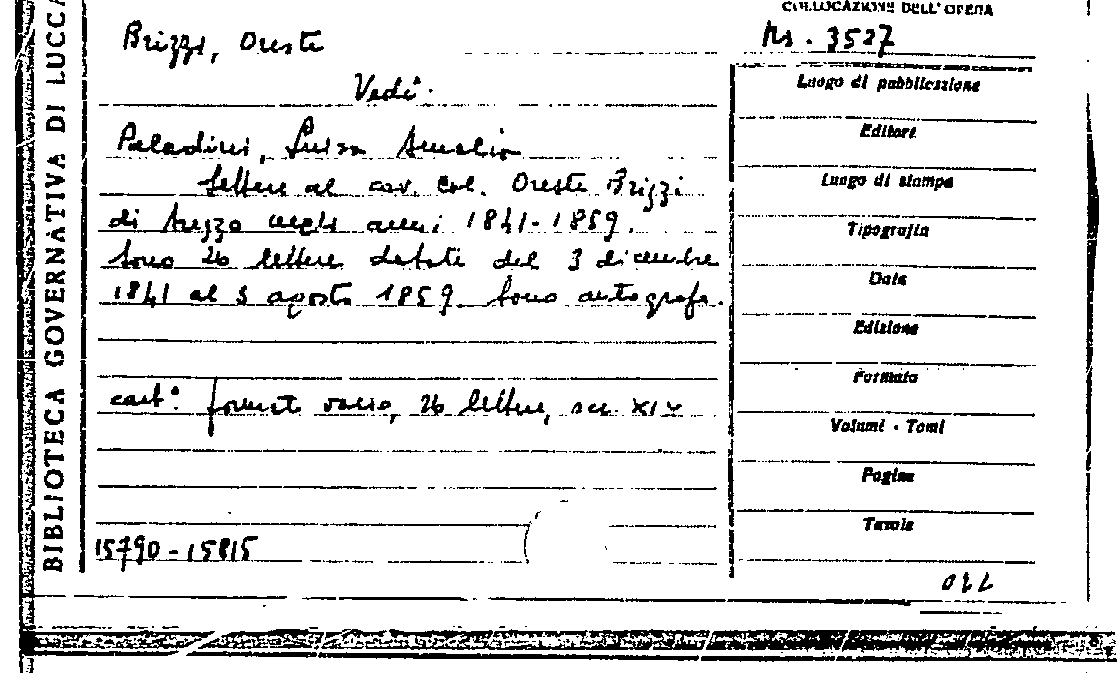 BIBLIOTECA GOVERNATIVA DI LUCCA
Brizzi, Oreste
Vedi:
Paladini, Luisa Amalia
Lettere al cav. Col. Oreste Brizzi
di Arezzo negli anni 1841-1859.
Sono 26 lettere datate del 3 dicembre
1841 al 5 agosto 1859. Sono autografe.
cart. formato vario, 26 lettere, sec. XIX
15790-15815
COLLOCAZIONE DELL'OPERA
Ms. 3527
Luogo di pubblicazione
Editore
Luogo di stampa
Tipografia
Data
Edizione
Formato
Volumi - Tomi
Pagine
Tavole